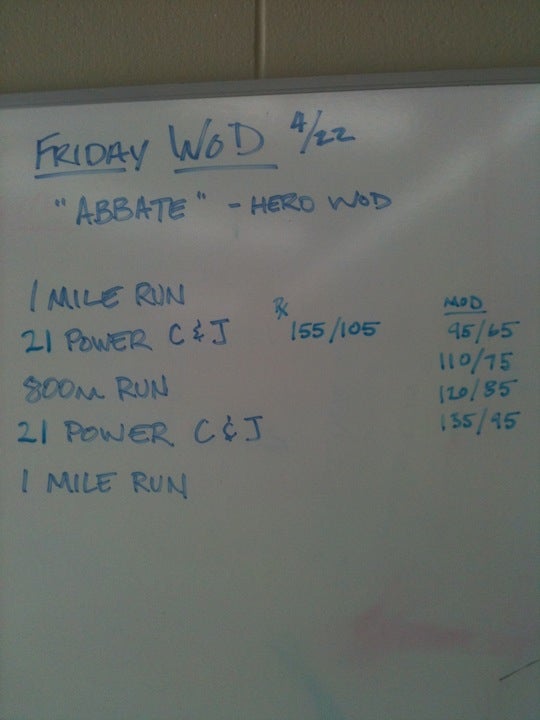 FRIDAY WOD 4/22
"ABBATE" - HERO WOD
1 MILE RUN
21 POWER C & J Rx 155/105
800m RUN
21 POWER C & J
1 MILE RUN
MOD
95/65
110/75
120/85
135/95